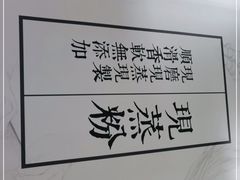 現蒸粉
現磨現蒸現製
順滑香軟無添加